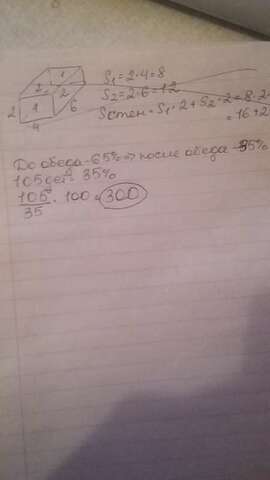 1
2
2
1
2
6
4
S₁ = 2·4 = 8
S₂ = 2·6 = 12
Sстен = S₁·2 + S₂·2 = 8·2
= 16+2
До обеда - 65% ⇒ после обеда - 35%
105 дет - 35%
105/35 · 100 = 300